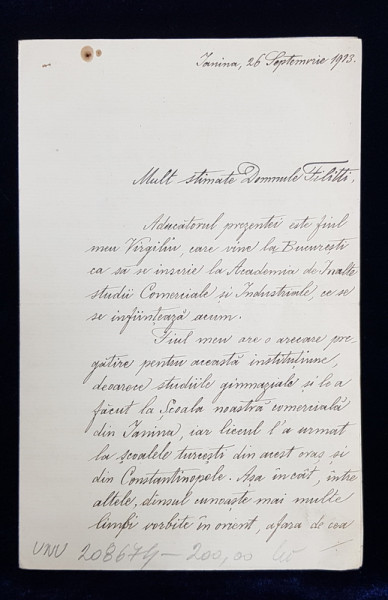 Janina, 26 Septemvrie 1913.
Mult stimate Domnule Filitti,
Aducătorul prezentei este fiul
meu Virgiliu, care vine la București
ca să se inscrie la Academia de Inalte
studii Comerciale și Industriale, ce se
se inființează acum.
Fiul meu are o arecare pre-
gătire pentru această instituțiune,
deoarece studiile gimnaziale și le a
făcut la Școala noastră comercială
din Janina, iar liceul l'a urmat
la școalele turcești din acest oraș și
din Constantinopole. Așa în cât, între
altele, dînsul cunoaște mai multe
limbi vorbite în orient, afara de cea
VNV 208674 - 200,00